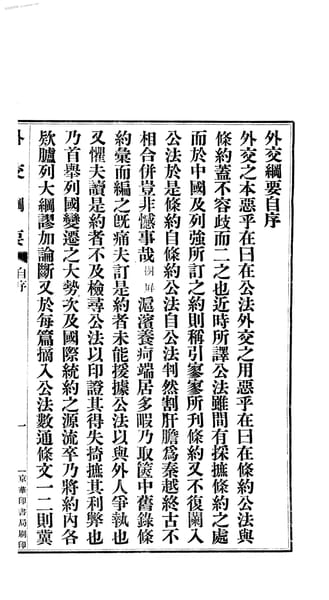 外交綱要自序
外交之本惡乎在曰在公法外交之用惡乎在曰在條約公法與
條約蓋不容歧而二之也近時所譯公法雖間有採摭條約之處
而於中國及列強所訂之約則稱引寥寥所刊條約又不復闌入
公法於是條約自條約公法自公法判然割肝膽為秦越終古不
相合併豈非憾事哉 滬濱養疴端居多暇乃取篋中舊錄條
約彙而編之旣痛夫訂是約者未能援據公法以與外人爭執也
又懼夫讀是約者不及檢尋公法以印證其得失掎摭其利弊也
乃首舉列國變遷之大勢次及國際統約之源流卒乃將約內各
欵臚列大綱謬加論斷又於每篇摘入公法數通條文一二則冀
外交綱要
自序
一
京華印書局刷印